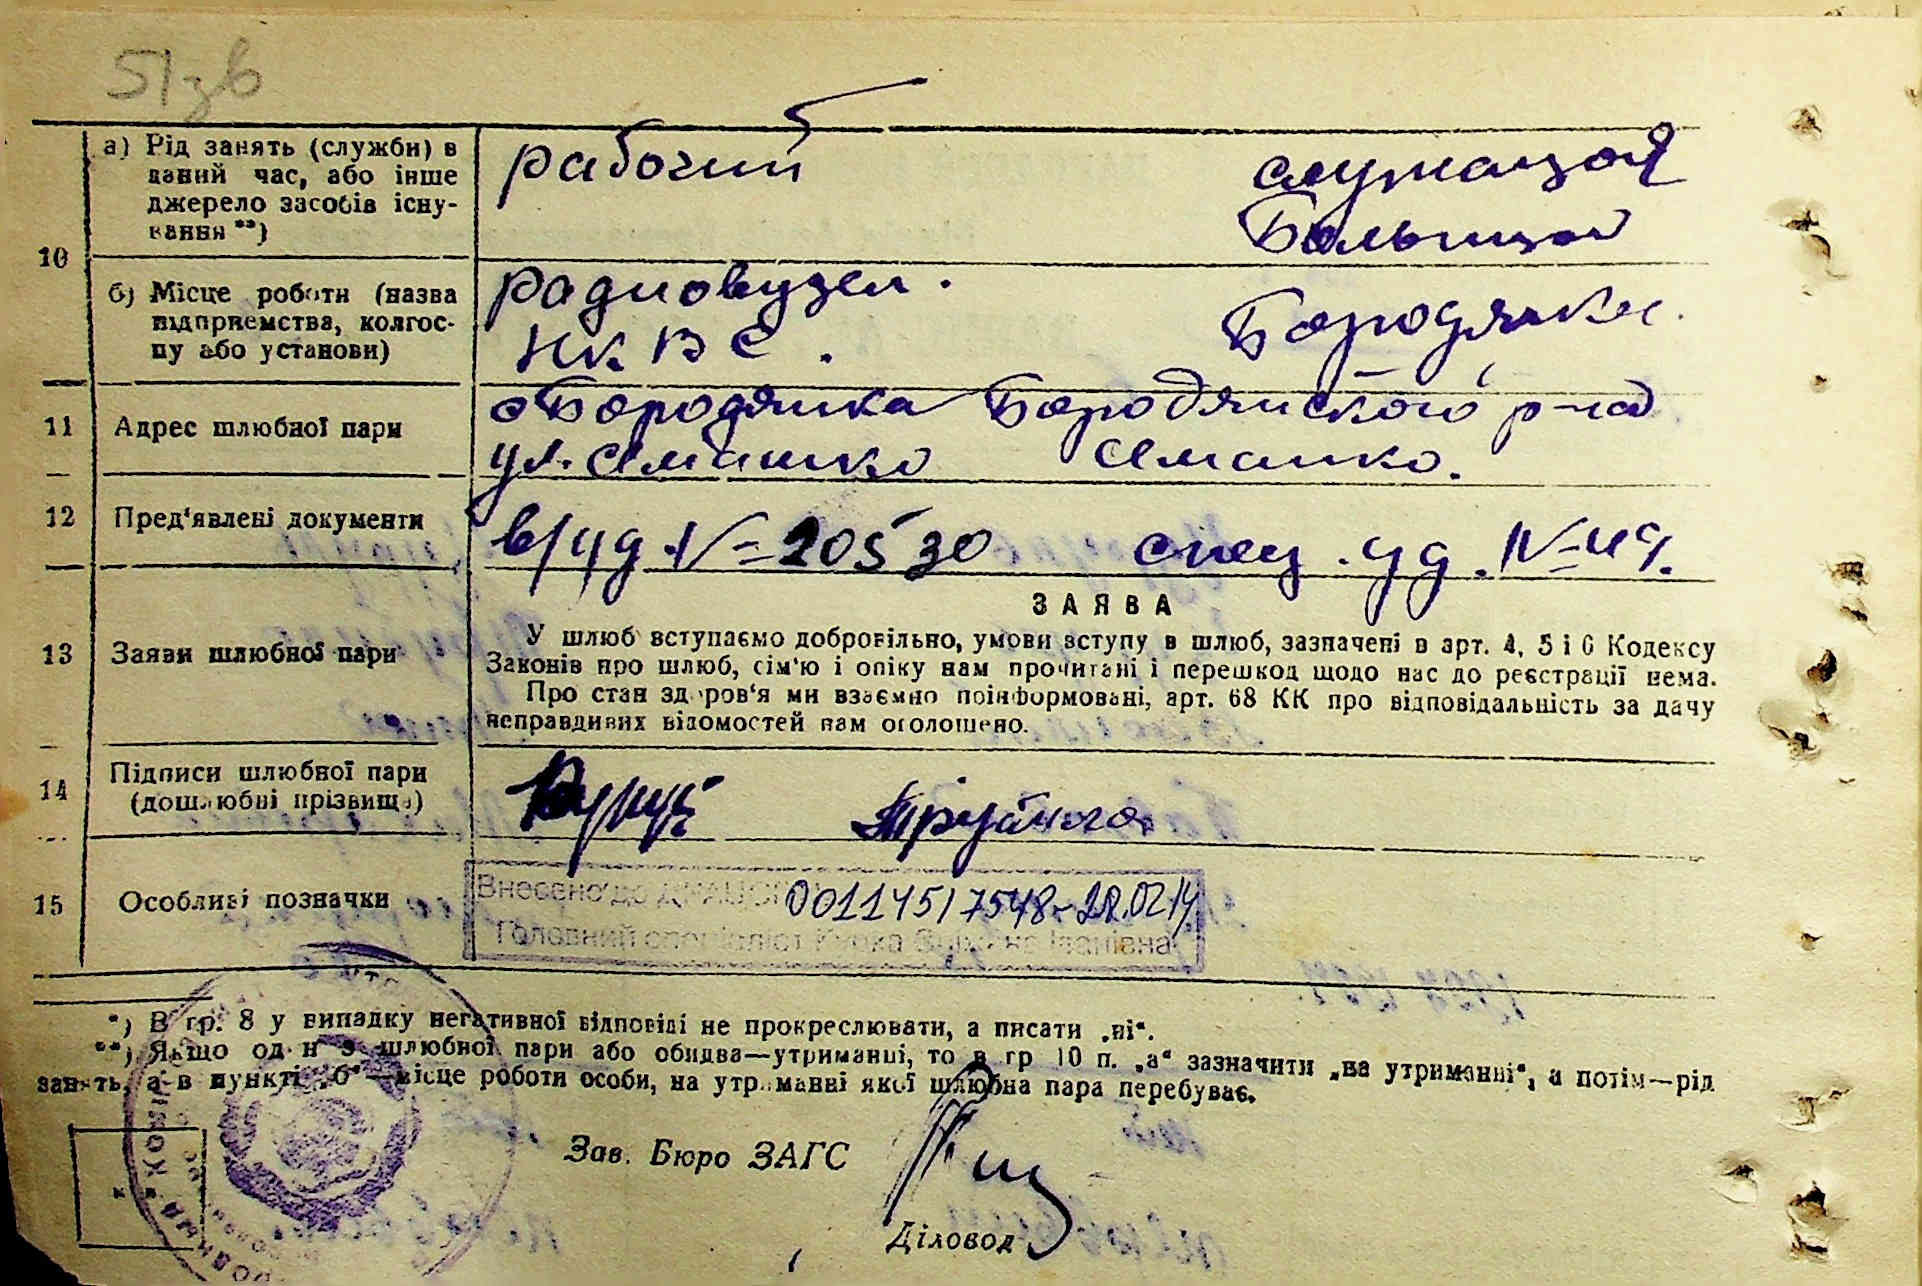 51зв
а) Рід занять (служби) в
даний час, або інше
джерело засобів існу-
вання **)
рабочий
служащая
Больницы
10
б) Місце роботи (назва
підприємства, колгос-
пу або установи)
радиовузел.
НКВС.
Бородянки.
11
Адрес шлюбної пари
Бородянка Бородянского р-на
ул.
12
Пред'явлені документи
в/уд. № 20530 спец. уд. № 49.
13
Заяви шлюбної пари
ЗАЯВА
У шлюб вступаємо добровільно, умови вступу в шлюб, зазначені в арт. 4, 5 і 6 Кодексу
Законів про шлюб, сім'ю і опіку нам прочитані і перешкод щодо нас до реєстрації нема.
Про стан здоров'я ми взаємно поінформовані, арт. 68 КК про відповідальність за дачу
неправдивих відомостей нам оголошено.
14
Підписи шлюбної пари
(дошлюбні прізвища)
15
Особливі позначки
Внесено до ДРАЦСГ 00114517548 - 28.02.14
Головний спеціаліст Іванівна
*) В гр. 8 у випадку негативної відповіді не прокреслювати, а писати „ні“.
**) Якщо один з шлюбної пари або обидва—утриманці, то в гр 10 п. „а“ зазначити „на утриманні“, а потім—рід
занять, а в пункті „б“—місце роботи особи, на утриманні якої шлюбна пара перебуває.
Зав. Бюро ЗАГС
Діловод